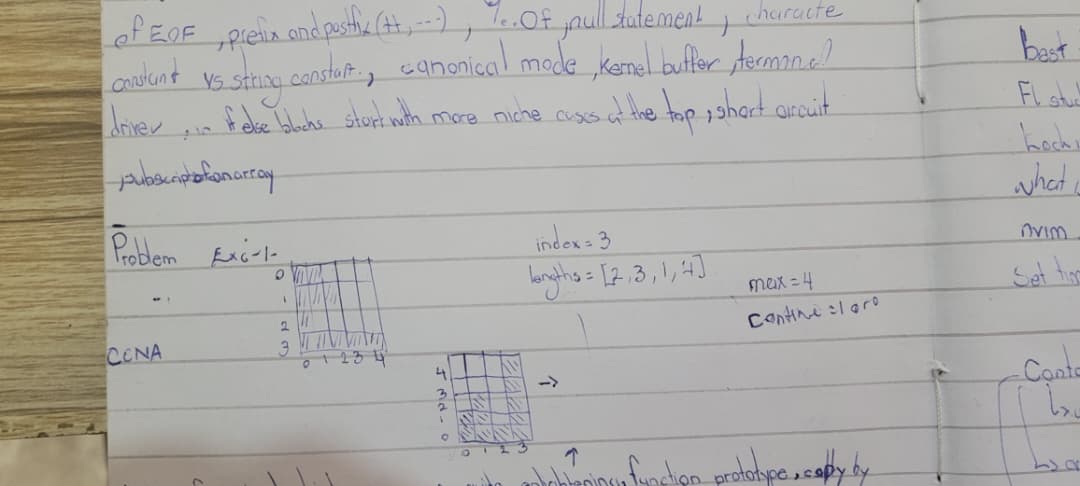 of EOF , prefix and postfix (++, ---) , %.0f , null statement , characte
constant vs string constant. , canonical mode , kernel buffer , terminal
driver , in if else blocks start with more niche cases at the top , short circuit
, subscript of an array
Problem Ex:-1-
index = 3
lengths = [2, 3, 1, 4]
max = 4
continue = 1 or 0
0
1
2
3
0 1 2 3 4
CCNA
4
3
2
1
0
0 1 2 3
->
↑
function prototype , copy by
best
FL stud
what
nvim
Set
Conte